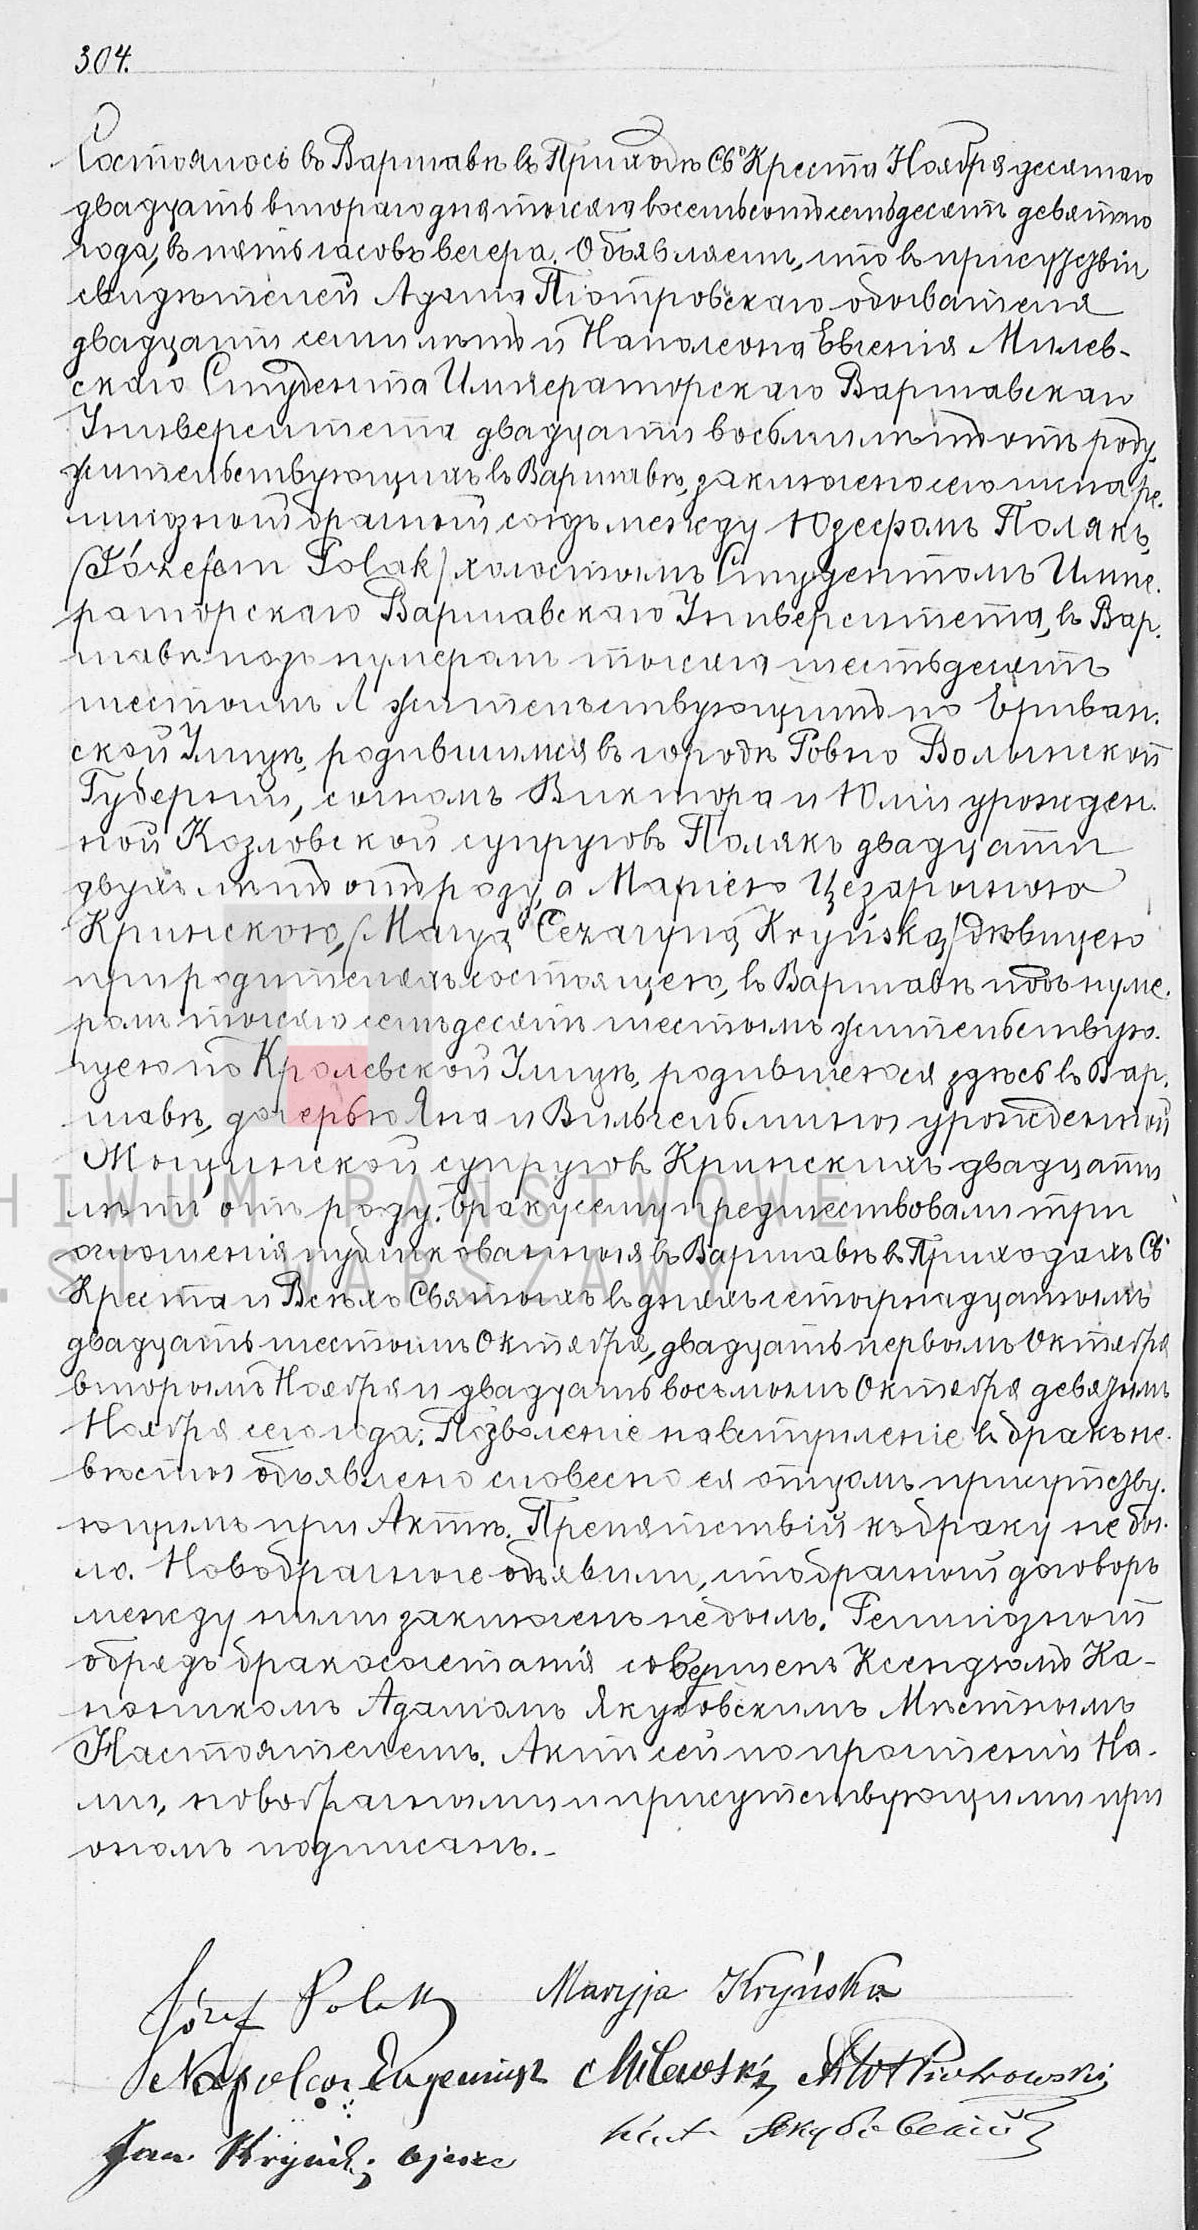 304.
Состоялось въ Варшавѣ въ Приходѣ Св. Креста Ноября десятаго
двадцать втораго дня тысяча восемьсотъ семьдесятъ девятаго
года, въ пять часовъ вечера. Объявляемъ, что въ присутствіи
свидѣтелей Адама Піотровскаго обывателя
двадцати семи лѣтъ и Наполеона Евгенія Милев-
скаго Студента Императорскаго Варшавскаго
Университета двадцати восьми лѣтъ отъ роду,
жительствующихъ въ Варшавѣ, заключено сего числа ре.
лигіозный брачный союзъ между Юзефомъ Полякъ,
/Józefem Polak/ холостымъ Студентомъ Импе.
раторскаго Варшавскаго Университета, въ Вар.
шавѣ подъ нумеромъ тысяча шестьдесятъ
шестымъ Л жительствующимъ по Ериван.
ской Улицѣ, родившимся въ городѣ Ровно Волынской
Губерніи, сыномъ Виктора и Юліи урожден.
ной Козловской супруговъ Полякъ двадцати
двухъ лѣтъ отъ роду, а Маріею Цезариною
Крынскою, /Maryą Cezaryną Kryńską/ дѣвицею
при родителяхъ состоящею, въ Варшавѣ подъ нуме.
ромъ тысяча семьдесятъ шестымъ жительствую.
щею по Кролевской Улицѣ, родившеюся здѣсь въ Вар.
шавѣ, дочерью Яна и Вильгельмины урожденной
Мощинской супруговъ Крынскихъ двадцати
лѣтъ отъ роду. Браку сему предшествовали три
оглашенія публикованныя въ Варшавѣ въ Приходахъ Св.
Креста и Всѣхъ Святыхъ въ дняхъ четырнадцатомъ
двадцать шестомъ Октября, двадцать первомъ Октября
второмъ Ноября и двадцать восьмомъ Октября девятомъ
Ноября сего года. Позволеніе на вступленіе въ бракъ не.
вѣсты объявлено словесно ея отцомъ присутству.
ющимъ при Актѣ. Препятствій къ браку не бы.
ло. Новобрачные объявили, что брачный договоръ
между ними заключенъ не былъ. Религіозный
обрядъ бракосочетанія совершенъ Ксендзомъ Ка-
ноникомъ Адамомъ Якубовскимъ Мѣстнымъ
Настоятелемъ. Актъ сей по прочтеніи На-
ми, новобрачными и присутствующими при
ономъ подписанъ.-
Józef Polak Maryja Kryńska
Napoleon Eugeniusz Milewski Piotrowski
Jan Kryński ojciec Якубовскій
HIWUM PAŃSTWOWE
. ST. WARSZAWY